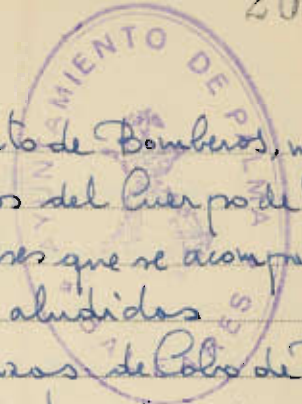 20
AYUNTAMIENTO DE PALMA
BALEARES
to de Bomberos, m
os del Cuerpo de
ses que se acompa
aludidas
azas de Cabo de